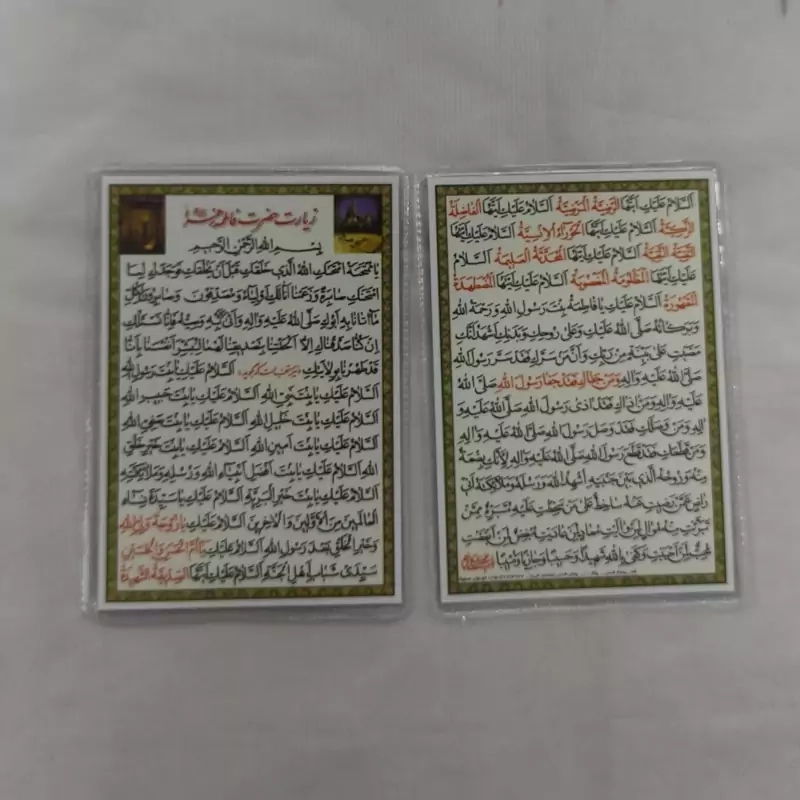 زیارت حضرت فاطمه زهرا
بِسْمِ اللهِ الرَّحْمٰنِ الرَّحیمِ
یا مُمْتَحَنَةُ امْتَحَنَكِ اللهُ الَّذی خَلَقَكِ قَبْلَ اَنْ یَخْلُقَكِ فَوَجَدَكِ لِمَا
امْتَحَنَكِ صابِرَةً وَزَعَمْنا اَنّا لَكِ اَوْلِیاءُ وَمُصَدِّقُونَ وَصابِرُونَ لِكُلِّ
ما اَتانا بِهِ اَبُوكِ صَلَّی اللهُ عَلَیْهِ وَالِهِ وَاَتی بِهِ وَصِیُّهُ فَاِنّا نَسْئَلُكِ
اِنْ كُنّا صَدَّقْناكِ اِلاّ اَلْحَقْتِنا بِتَصْدیقِنا لَهُما لِنُبَشِّرَ اَنْفُسَنا بِاَنّا
قَدْ طَهُرْنا بِوِلایَتِكِ اَلسَّلامُ عَلَیْكِ یا بِنْتَ رَسُولِ اللهِ
اَلسَّلامُ عَلَیْكِ یا بِنْتَ نَبِیِّ اللهِ اَلسَّلامُ عَلَیْكِ یا بِنْتَ حَبیبِ اللهِ
اَلسَّلامُ عَلَیْكِ یا بِنْتَ خَلیلِ اللهِ اَلسَّلامُ عَلَیْكِ یا بِنْتَ صَفِیِّ اللهِ
اَلسَّلامُ عَلَیْكِ یا بِنْتَ اَمینِ اللهِ اَلسَّلامُ عَلَیْكِ یا بِنْتَ خَیْرِ خَلْقِ
اللهِ اَلسَّلامُ عَلَیْكِ یا بِنْتَ اَفْضَلِ اَنْبِیاءِ اللهِ وَرُسُلِهِ وَمَلائِكَتِهِ
اَلسَّلامُ عَلَیْكِ یا بِنْتَ خَیْرِ الْبَرِیَّةِ اَلسَّلامُ عَلَیْكِ یا سَیِّدَةَ نِساءِ
الْعالَمینَ مِنَ الْاَوَّلینَ وَالْاخِرینَ اَلسَّلامُ عَلَیْكِ یا زَوْجَةَ وَلِیِّ اللهِ
وَخَیْرِ الْخَلْقِ بَعْدَ رَسُولِ اللهِ اَلسَّلامُ عَلَیْكِ یا اُمَّ الْحَسَنِ وَالْحُسَیْنِ
سَیِّدَیْ شَبابِ اَهْلِ الْجَنَّةِ اَلسَّلامُ عَلَیْكِ اَیَّتُهَا الصِّدّیقَةُ الشَّهیدَةُ
اَلسَّلامُ عَلَیْكِ اَیَّتُهَا الرَّضِیَّةُ الْمَرْضِیَّةُ اَلسَّلامُ عَلَیْكِ اَیَّتُهَا الْفاضِلَةُ
الزَّكِیَّةُ اَلسَّلامُ عَلَیْكِ اَیَّتُهَا الْحَوْراءُ الْاِنْسِیَّةُ اَلسَّلامُ عَلَیْكِ اَیَّتُهَا
التَّقِیَّةُ النَّقِیَّةُ اَلسَّلامُ عَلَیْكِ اَیَّتُهَا الْمُحَدَّثَةُ الْعَلیمَةُ اَلسَّلامُ
عَلَیْكِ اَیَّتُهَا الْمَظْلُومَةُ الْمَغْصُوبَةُ اَلسَّلامُ عَلَیْكِ اَیَّتُهَا الْمُضْطَهَدَةُ
الْمَقْهُورَةُ اَلسَّلامُ عَلَیْكِ یا فاطِمَةُ بِنْتَ رَسُولِ اللهِ وَرَحْمَةُ اللهِ
وَبَرَكاتُهُ صَلَّی اللهُ عَلَیْكِ وَعَلی رُوحِكِ وَبَدَنِكِ اَشْهَدُ اَنَّكِ
مَضَیْتِ عَلی بَیِّنَةٍ مِنْ رَبِّكِ وَاَنَّ مَنْ سَرَّكِ فَقَدْ سَرَّ رَسُولَ اللهِ
صَلَّی اللهُ عَلَیْهِ وَالِهِ وَمَنْ جَفاكِ فَقَدْ جَفا رَسُولَ اللهِ صَلَّی اللهُ
عَلَیْهِ وَالِهِ وَمَنْ اذاكِ فَقَدْ اذی رَسُولَ اللهِ صَلَّی اللهُ عَلَیْهِ وَ
الِهِ وَمَنْ وَصَلَكِ فَقَدْ وَصَلَ رَسُولَ اللهِ صَلَّی اللهُ عَلَیْهِ وَالِهِ
وَمَنْ قَطَعَكِ فَقَدْ قَطَعَ رَسُولَ اللهِ صَلَّی اللهُ عَلَیْهِ وَالِهِ لِاَنَّكِ بِضْعَةٌ
مِنْهُ وَرُوحُهُ الَّذی بَیْنَ جَنْبَیْهِ اُشْهِدُ اللهَ وَرُسُلَهُ وَمَلائِكَتَهُ اَنّی
راضٍ عَمَّنْ رَضیتِ عَنْهُ ساخِطٌ عَلی مَنْ سَخِطْتِ عَلَیْهِ مُتَبَرِّءٌ مِمَّنْ
تَبَرَّئْتِ مِنْهُ مُوالٍ لِمَنْ والَیْتِ مُعادٍ لِمَنْ عادَیْتِ مُبْغِضٌ لِمَنْ اَبْغَضْتِ
مُحِبٌّ لِمَنْ اَحْبَبْتِ وَكَفی بِاللهِ شَهیدًا وَحَسیبًا وَجازِیًا وَمُثیبًا